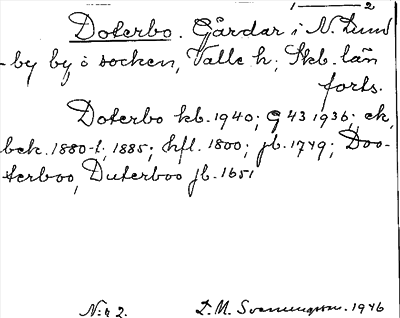 1 — 2
Doterbo. Gårdar i N. Lund
-by by o socken, Valle h; Skb. län
forts.
Doterbo kb. 1940; G 43 1936; ek,
bek. 1880-t; 1885; hfl. 1800; jb. 1749; Doo-
terboo, Duterboo jb. 1651
N:r 2. I. M. Svenningsson. 1946